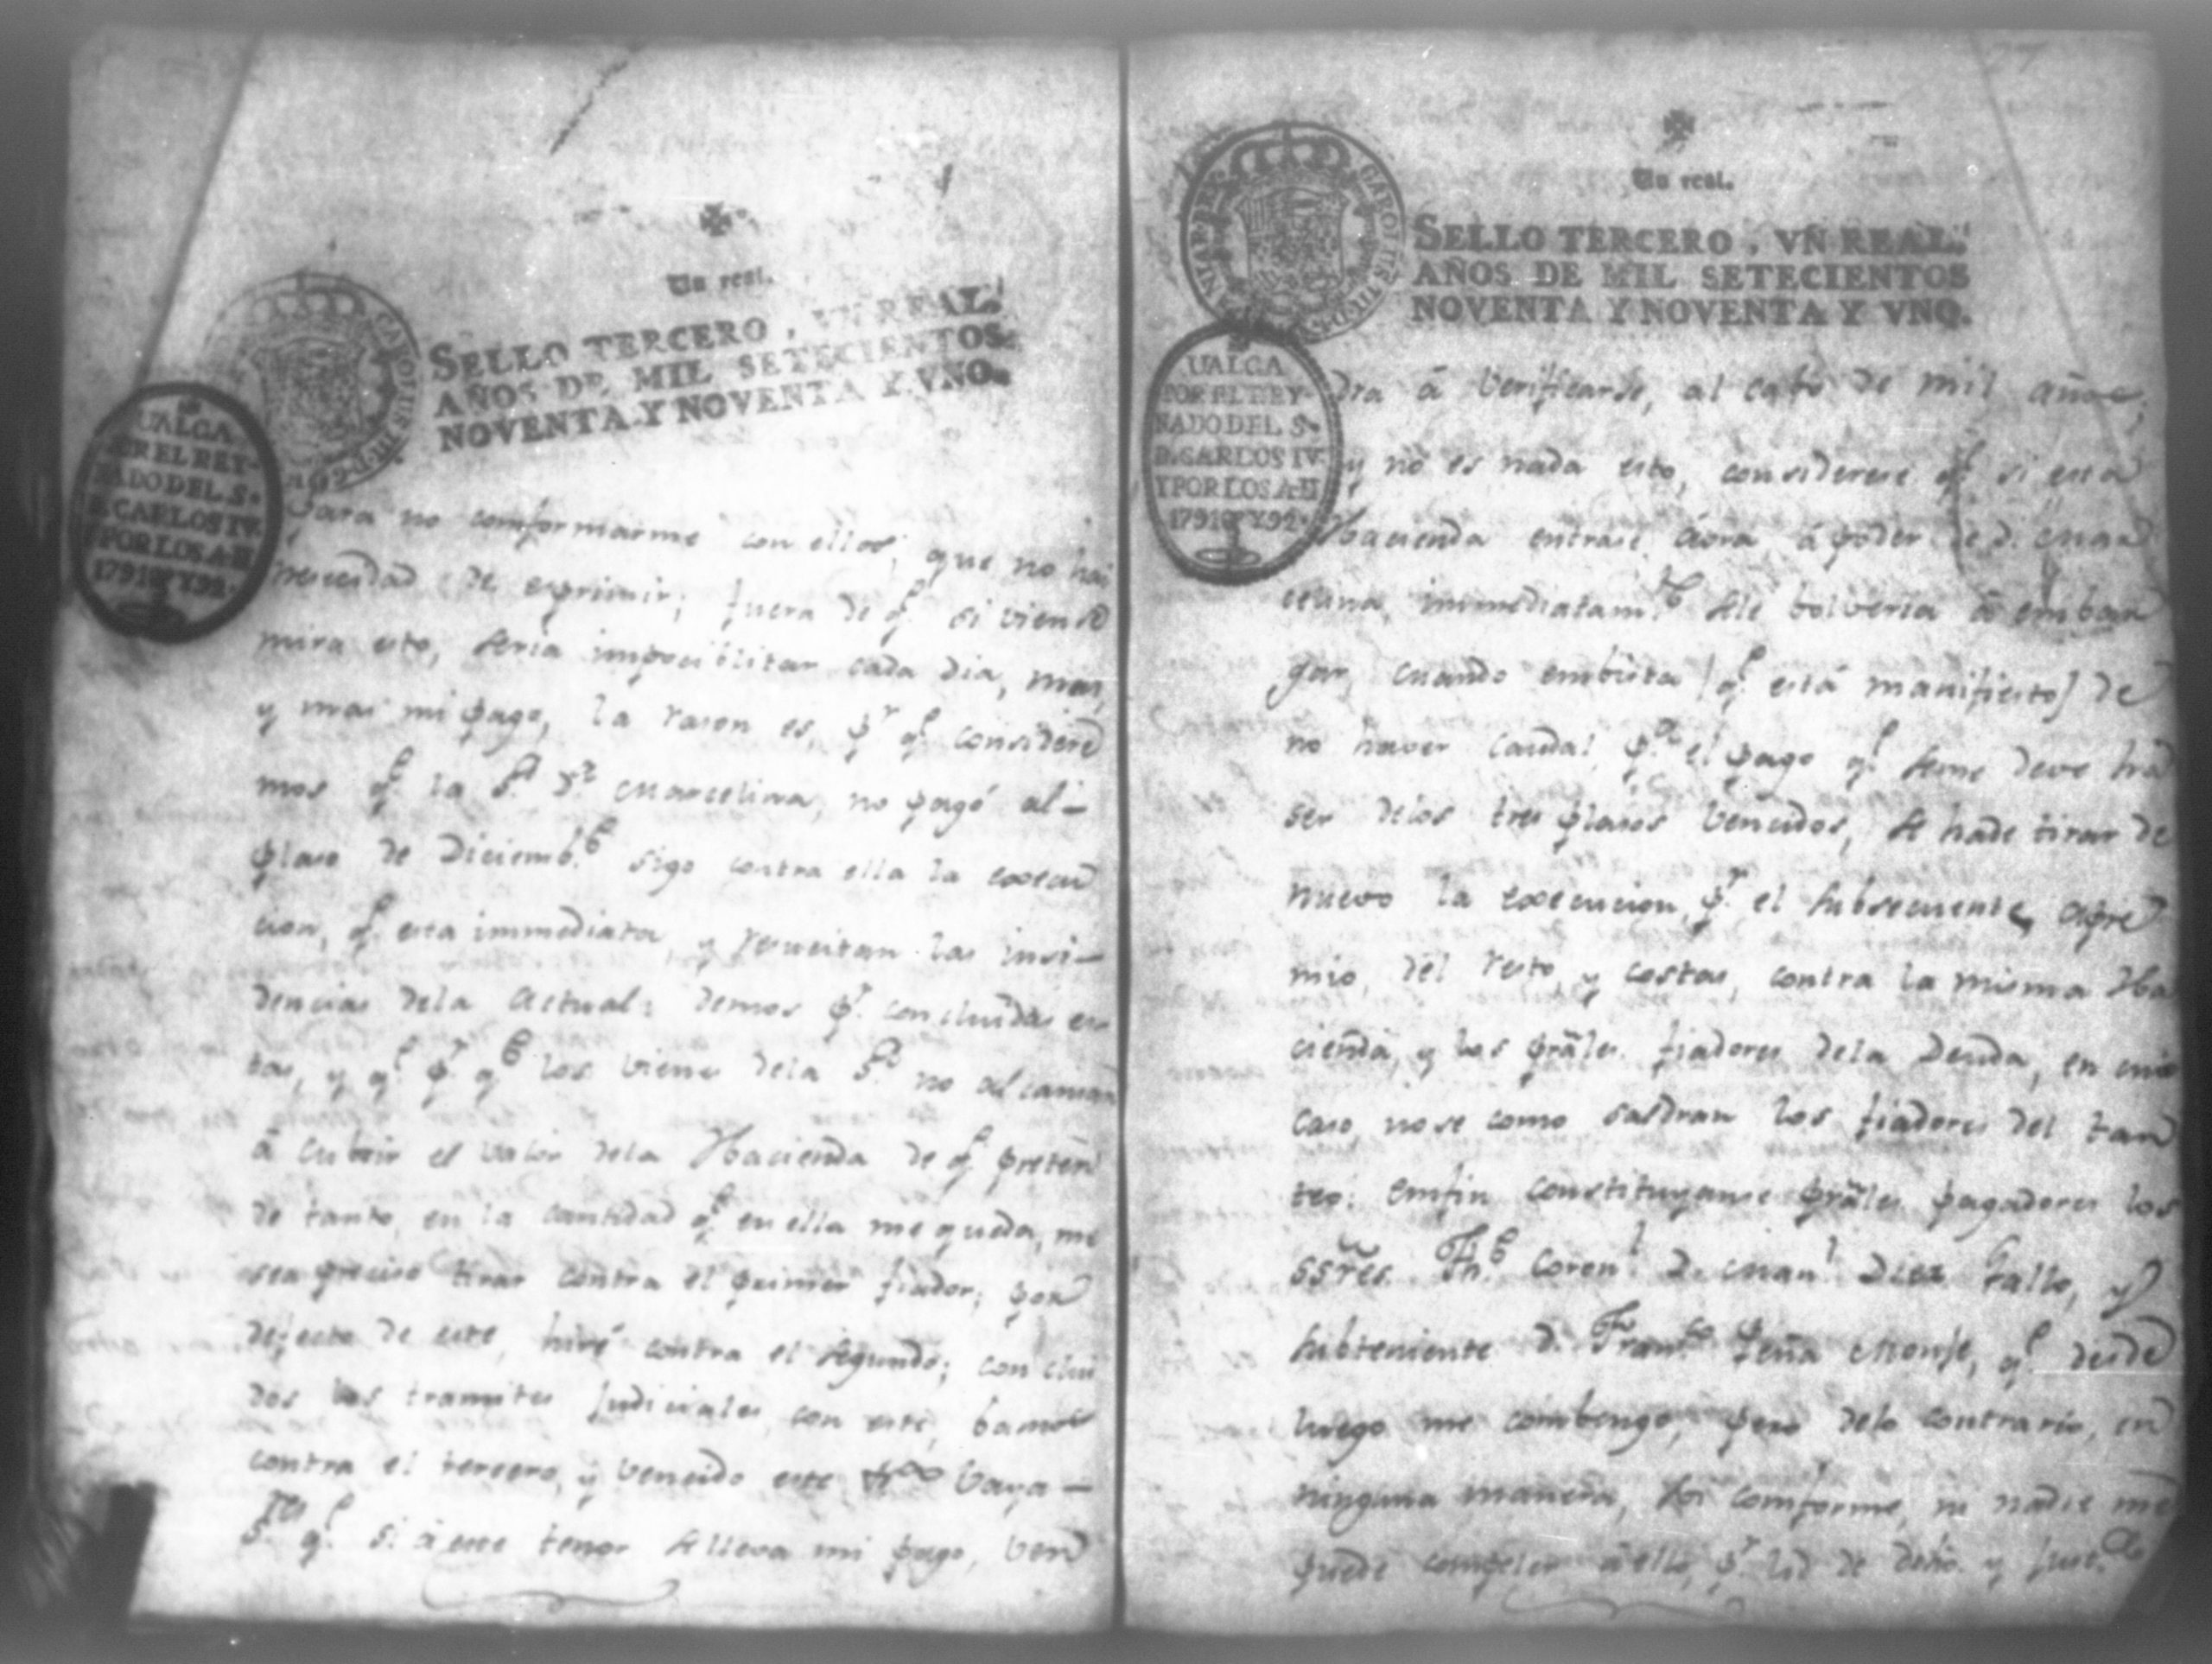 Un real.
SELLO TERCERO, VN REAL.
AÑOS DE MIL SETECIENTOS
NOVENTA Y NOVENTA Y VNO.
VALGA
POR EL REY-
NADO DEL S.
D. CARLOS IV.
Y POR LOS A.
1791 Y 92.
para no comformarme con ellos, que no hai
necesidad de exprimir; fuera de q.e si viens
mira esto, seria imposibilitar cada dia, mas,
y mas mi pago, la rason es, p.r q.e considere
mos q.e la S.a D.a Marcelina, no pagó al-
plaso de Diciemb.e sigo contra ella la execu
cion, q.e esta immediata, y resucitan las insi-
dencias dela actual: demos p.r concluidas es
tas, y q.e p.r q.e los vienes dela S.a no alcansan
á cubrir el valor dela Hacienda de q.e preten
de tanto, en la cantidad q.e en ella me queda, me
sea preciso tirar contra el primer fiador; por
defecto de este, hiré contra el segundo; conclui
dos los tramites judiciales con este, bamos
contra el tercero, y vencido este Vaya-
q.e si á este tenor se lleva mi pago, vend
Un real.
SELLO TERCERO, VN REAL.
AÑOS DE MIL SETECIENTOS
NOVENTA Y NOVENTA Y VNO.
CAROLUS III D G
VALGA
POR EL REY-
NADO DEL S.
D. CARLOS IV.
Y POR LOS A.
1791 Y 92.
dra á verificarse, al cabo de mil años,
y no es nada esto, considerese q.e si esta
Hacienda entrase aora á poder de D. Mar
celina, immediatam.te sele bolveria á embar
gar, cuando embista [q.e está manifiesto] de
no haver caudal p.a el pago q.e seme deve ha
ser delos tres plasos vencidos, se hade tirar de
nuevo la execucion, p.r el subsecuente, apre
mio, del resto, y costas, contra la misma Ha
cienda, y los prâles fiadores dela Deuda, en cuio
caso, nose como saldran los fiadores del tan
teo: emfin constituyanse prâles pagadores los
ssres. Th.e Coron.l D. Man.l Diez Fallo, y
subteniente D. Fran.co Peña Monje, q.e desde
luego me combengo, pero delo contrario, en
ninguna manera, soi comforme, ni nadie me
puede compeler á ello, p.r de dró. y